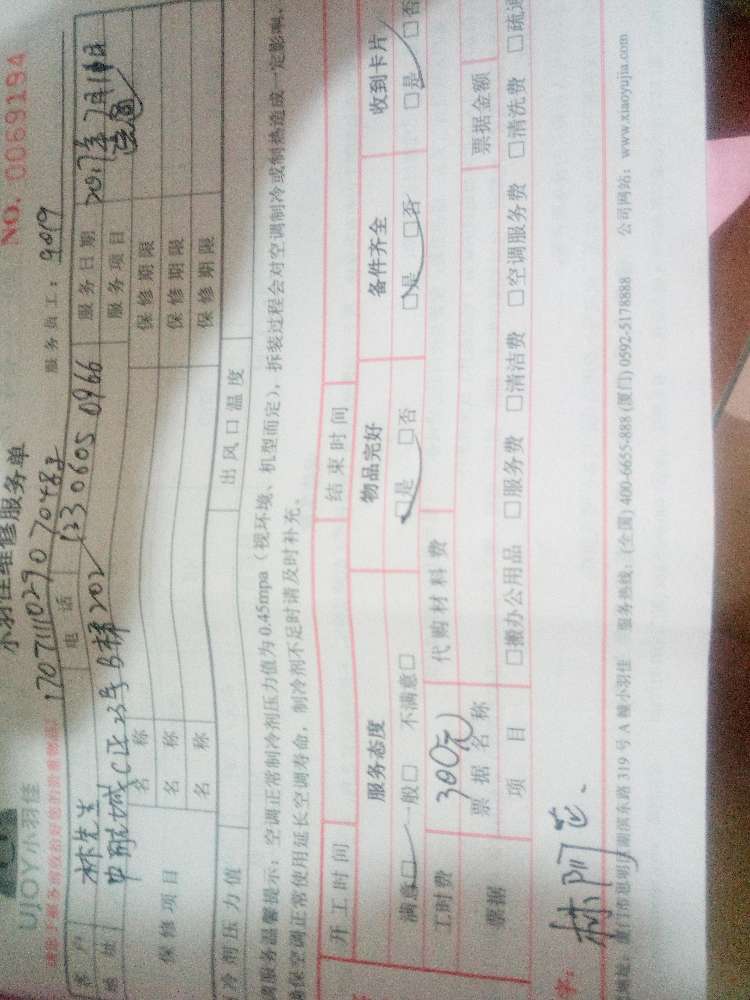 UJOY小羽佳
小羽佳维修服务单
NO. 0069194
170711102907 70483
服务员工: 9019
客户 林先生 电话 133 0605 0966 服务日期 2017年7月11日
地址 C区23号B梯202 服务项目
保修项目
名称 保修期限
名称 保修期限
名称 保修期限
制冷剂压力值 出风口温度
离服务温馨提示: 空调正常制冷剂压力值为0.45mpa（视环境、机型而定），拆装过程会对空调制冷或制热造成一定影响，
确保空调正常使用延长空调寿命，制冷剂不足时请及时补充。
开工时间 结束时间
服务态度 物品完好 备件齐全 收到卡片
满意□ 一般□ 不满意□ □是 □否 □是 □否 □是 □否
工时费 300元 代购材料费
票据 票据名称 票据金额
项目 □搬办公用品 □服务费 □清洁费 □空调服务费 □清洗费 □疏通
字:
厦门市思明区湖滨东路319号A幢小羽佳 服务热线: (全国) 400-6655-888 (厦门) 0592-5178888 公司网站: www.xiaoyujia.com